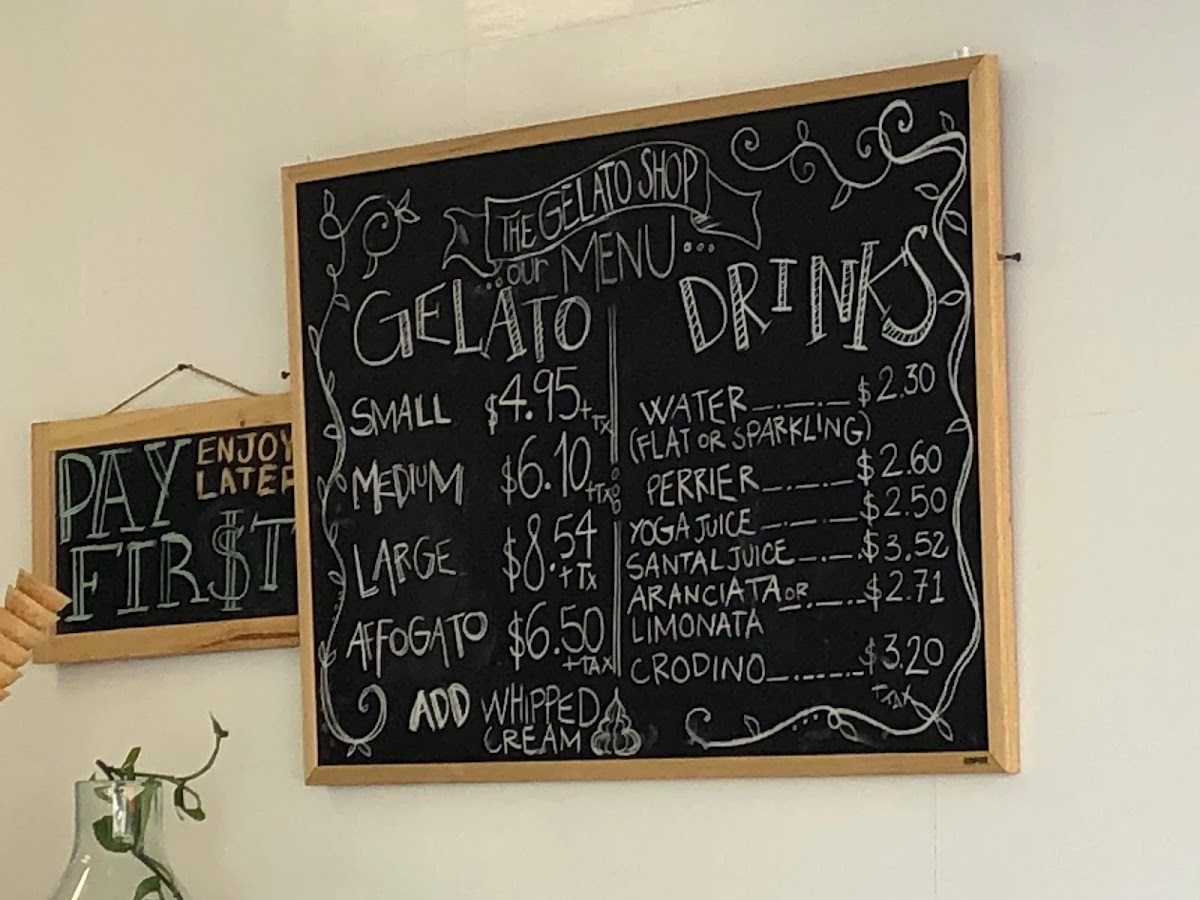 THE GELATO SHOP
...our MENU...
GELATO
SMALL $4.95 +TX
MEDIUM $6.10 +TX
LARGE $8.54 +TX
AFFOGATO $6.50 +TAX
ADD WHIPPED
CREAM
DRINKS
WATER $2.30
(FLAT OR SPARKLING)
PERRIER $2.60
YOGA JUICE $2.50
SANTAL JUICE $3.52
ARANCIATA OR $2.71
LIMONATA
CRODINO $3.20
+TAX
PAY ENJOY
LATER
FIR$T